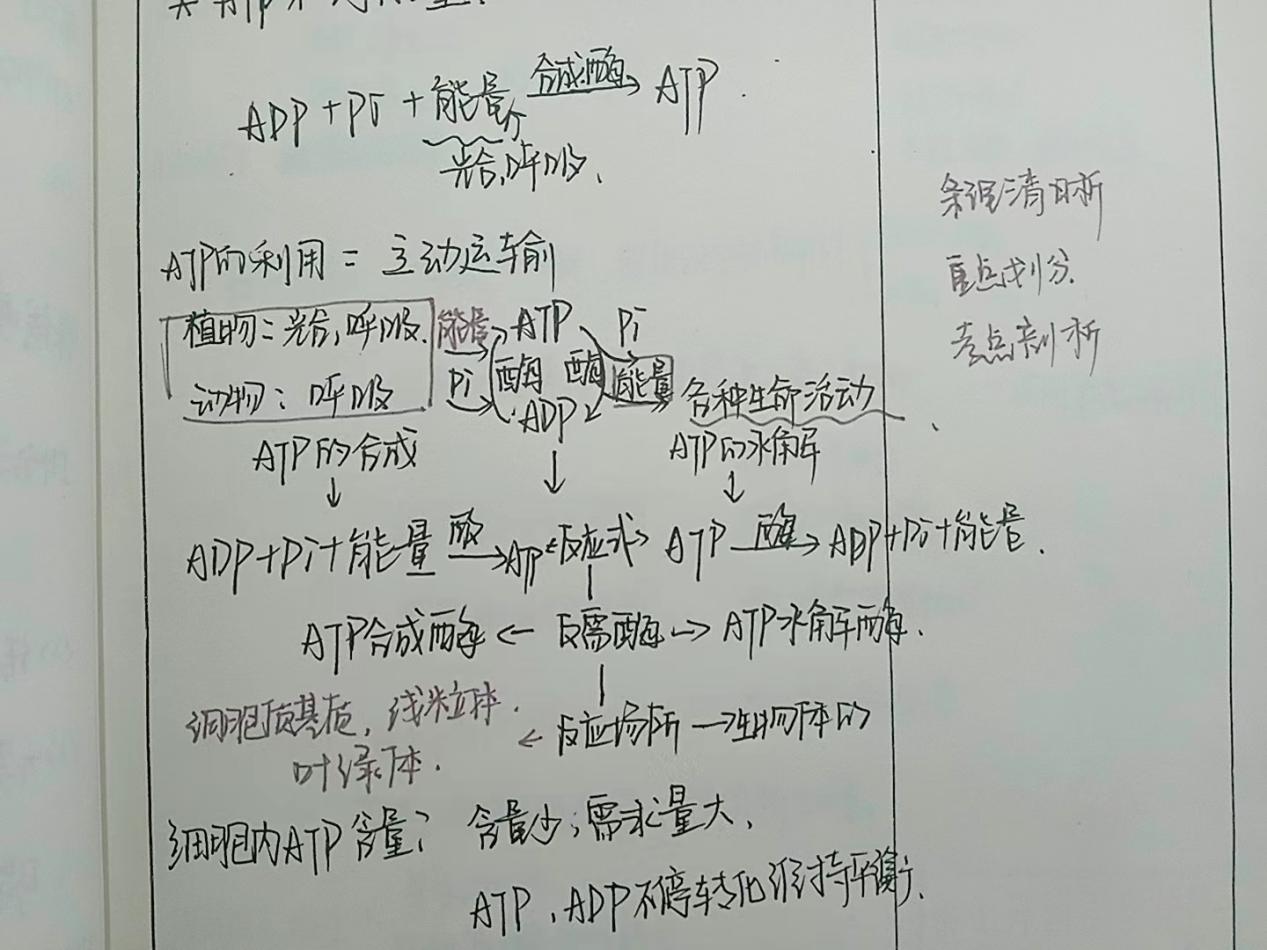 ADP + Pi + 能量 合成酶 ATP
光合,呼吸.
ATP的利用 = 主动运输
植物:光合,呼吸. 能量 ATP Pi
动物:呼吸 Pi 酶 酶 能量 各种生命活动
ADP
ATP的合成 ATP的水解
ADP+Pi+能量 酶 ATP 反应式 ATP 酶 ADP+Pi+能量.
ATP合成酶 ← 反需酶 → ATP水解酶.
细胞质基质,线粒体. ← 反应场所 → 生物体的
叶绿体.
细胞内ATP含量? 含量少;需求量大,
ATP、ADP不停转化维持平衡.
条理清晰
重点划分.
考点剖析